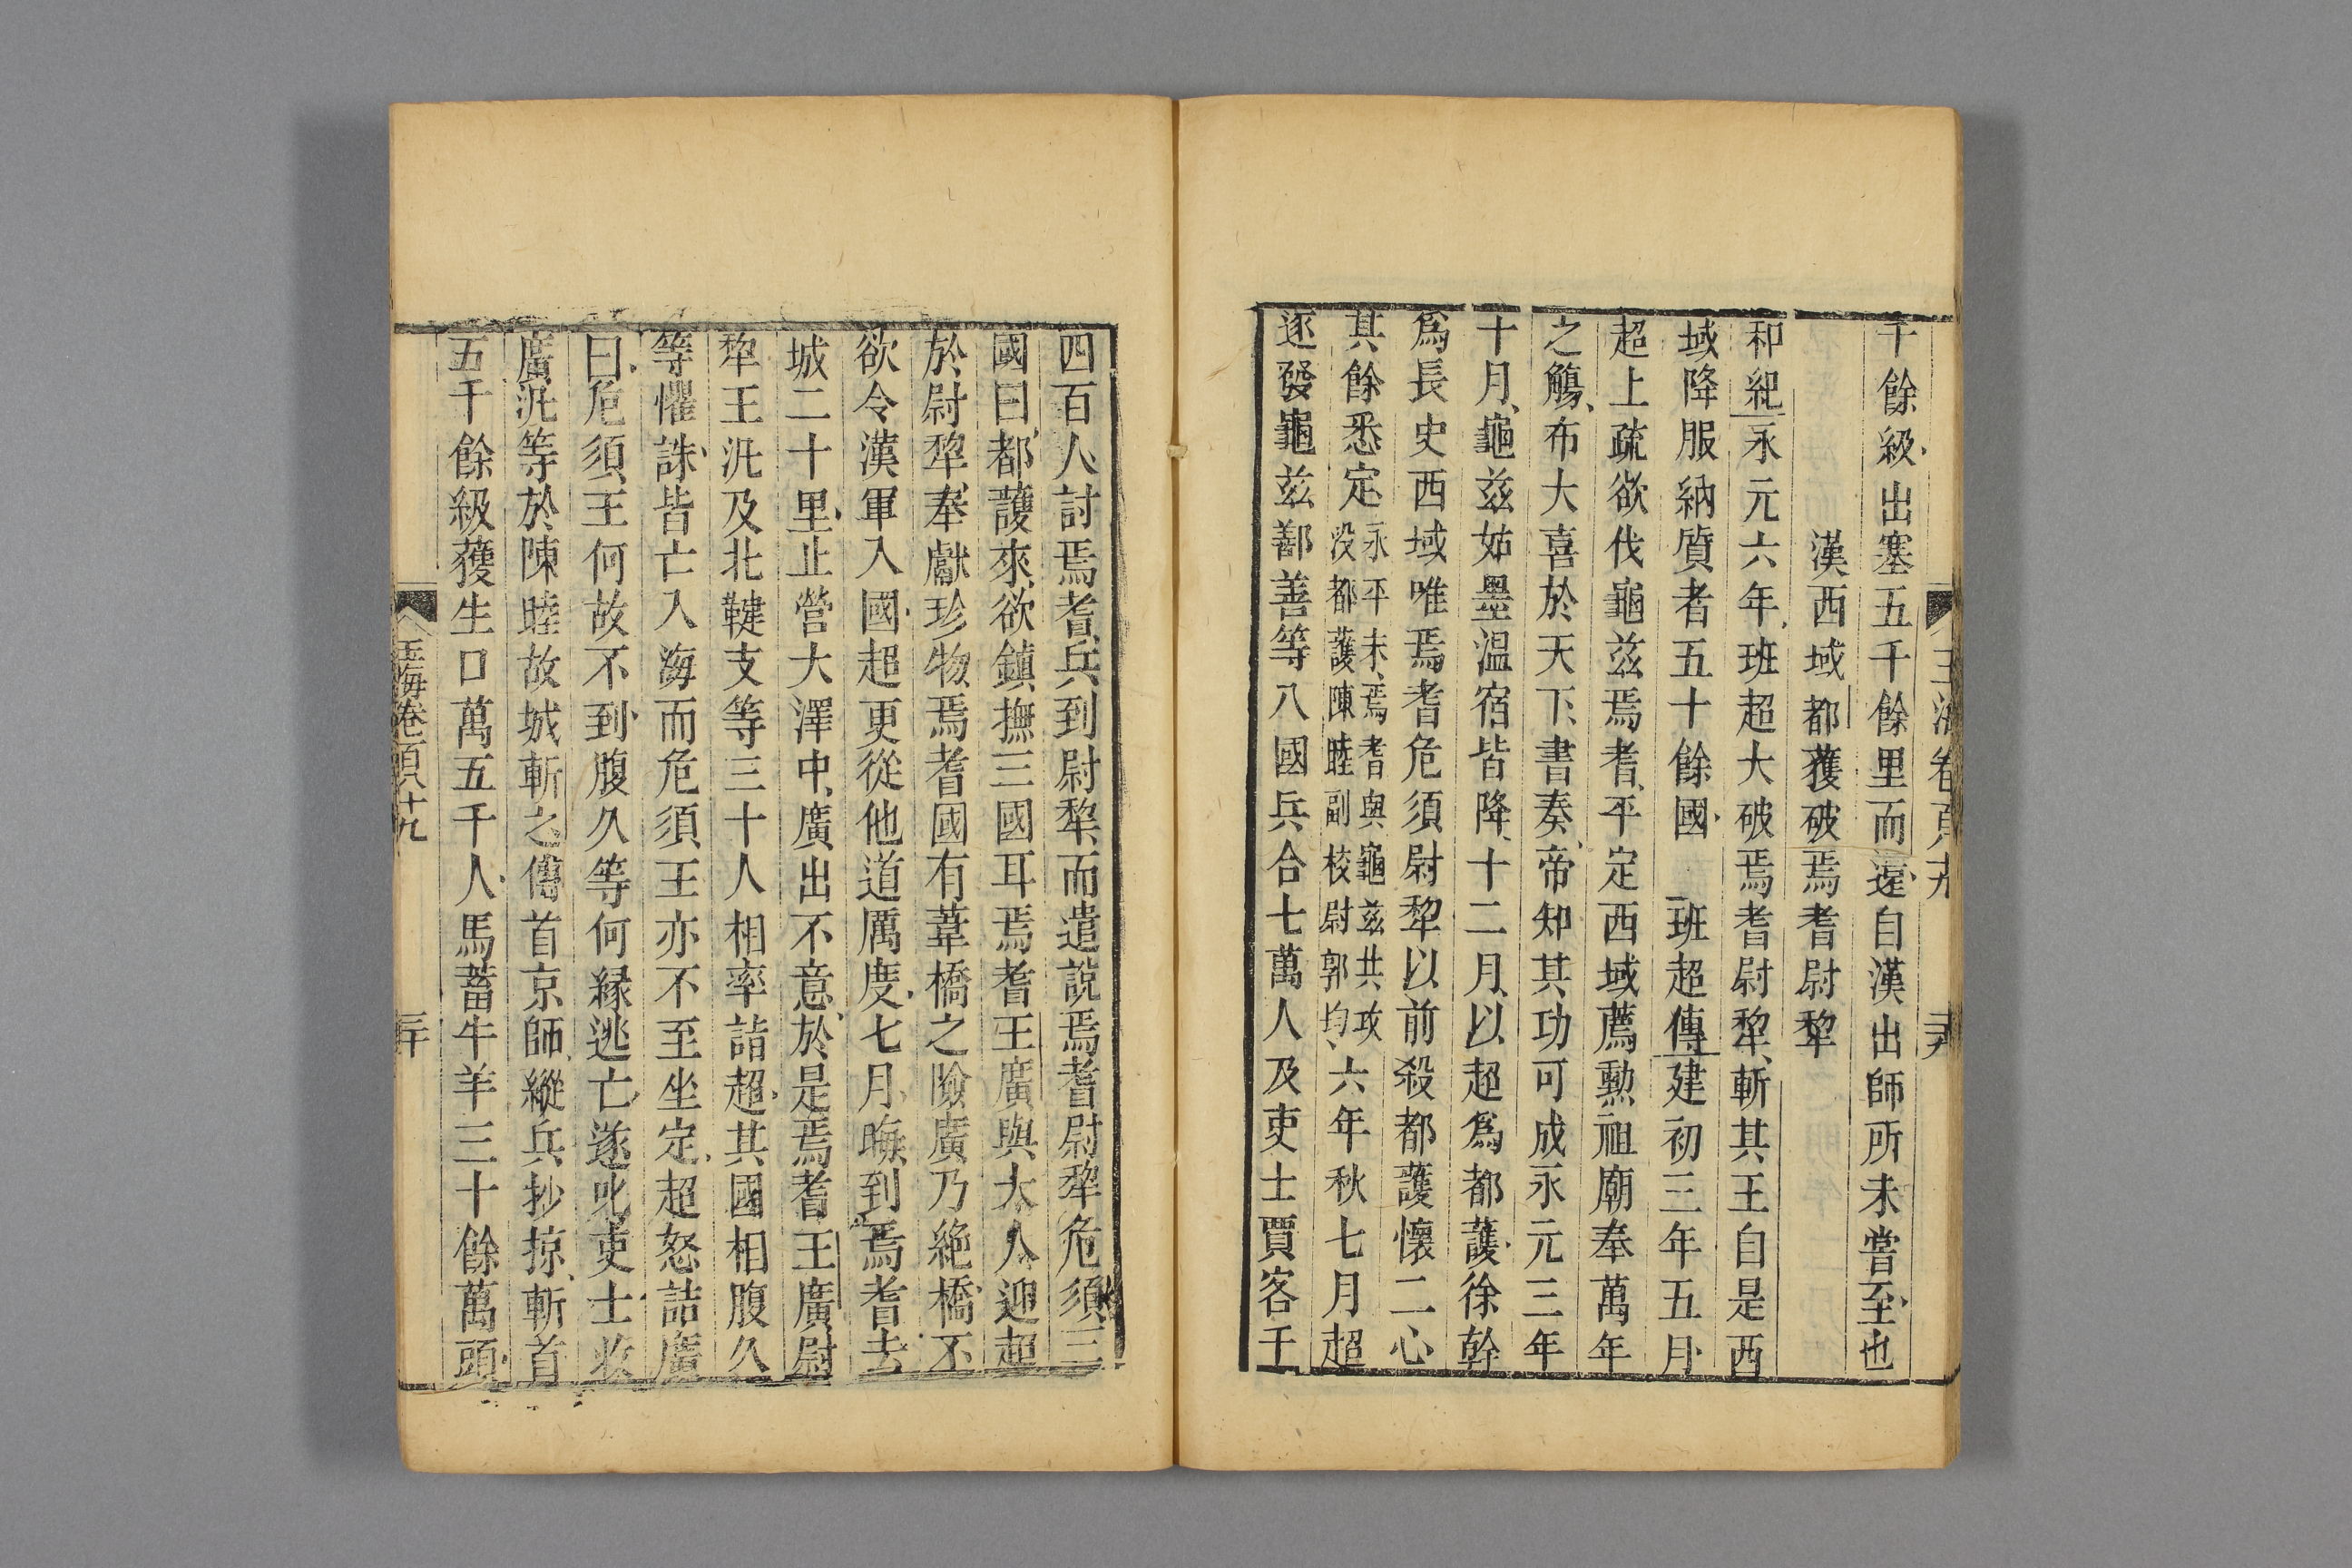 千餘級出塞五千餘里而還自漢出師所未嘗至也
漢西域都護破焉耆尉犂
和紀永元六年班超大破焉耆尉犂斬其王自是西
域降服納質者五十餘國 班超傳建初三年五月
超上疏欲伐龜兹焉耆平定西域薦勲祖廟奉萬年
之觴布大喜於天下書奏帝知其功可成永元三年
十月龜兹姑墨温宿皆降十二月以超爲都護徐幹
爲長史西域唯焉耆危須尉犂以前殺都護懷二心
其餘悉定永平末焉耆與龜兹共攻没都護陳睦副校尉郭均六年秋七月超
逐發龜兹鄯善等八國兵合七萬人及吏士賈客千
四百人討焉耆兵到尉犂而遣說焉耆尉犂危須三
國曰都護來欲鎮撫三國耳焉耆王廣與大人迎超
於尉犂奉獻珍物焉耆國有葦橋之險廣乃絶橋不
欲令漢軍入國超更從他道厲度七月晦到焉耆去
城二十里止營大澤中廣出不意於是焉耆王廣尉
犂王汎及北鞬支等三十人相率詣超其國相腹久
等懼誅皆亡入海而危須王亦不至坐定超怒詰廣
曰危須王何故不到腹久等何縁逃亡遂叱吏士收
廣汎等於陳睦故城斬之傳首京師縱兵抄掠斬首
五千餘級獲生口萬五千人馬蓄牛羊三十餘萬頭
玉海卷百八十九
三十